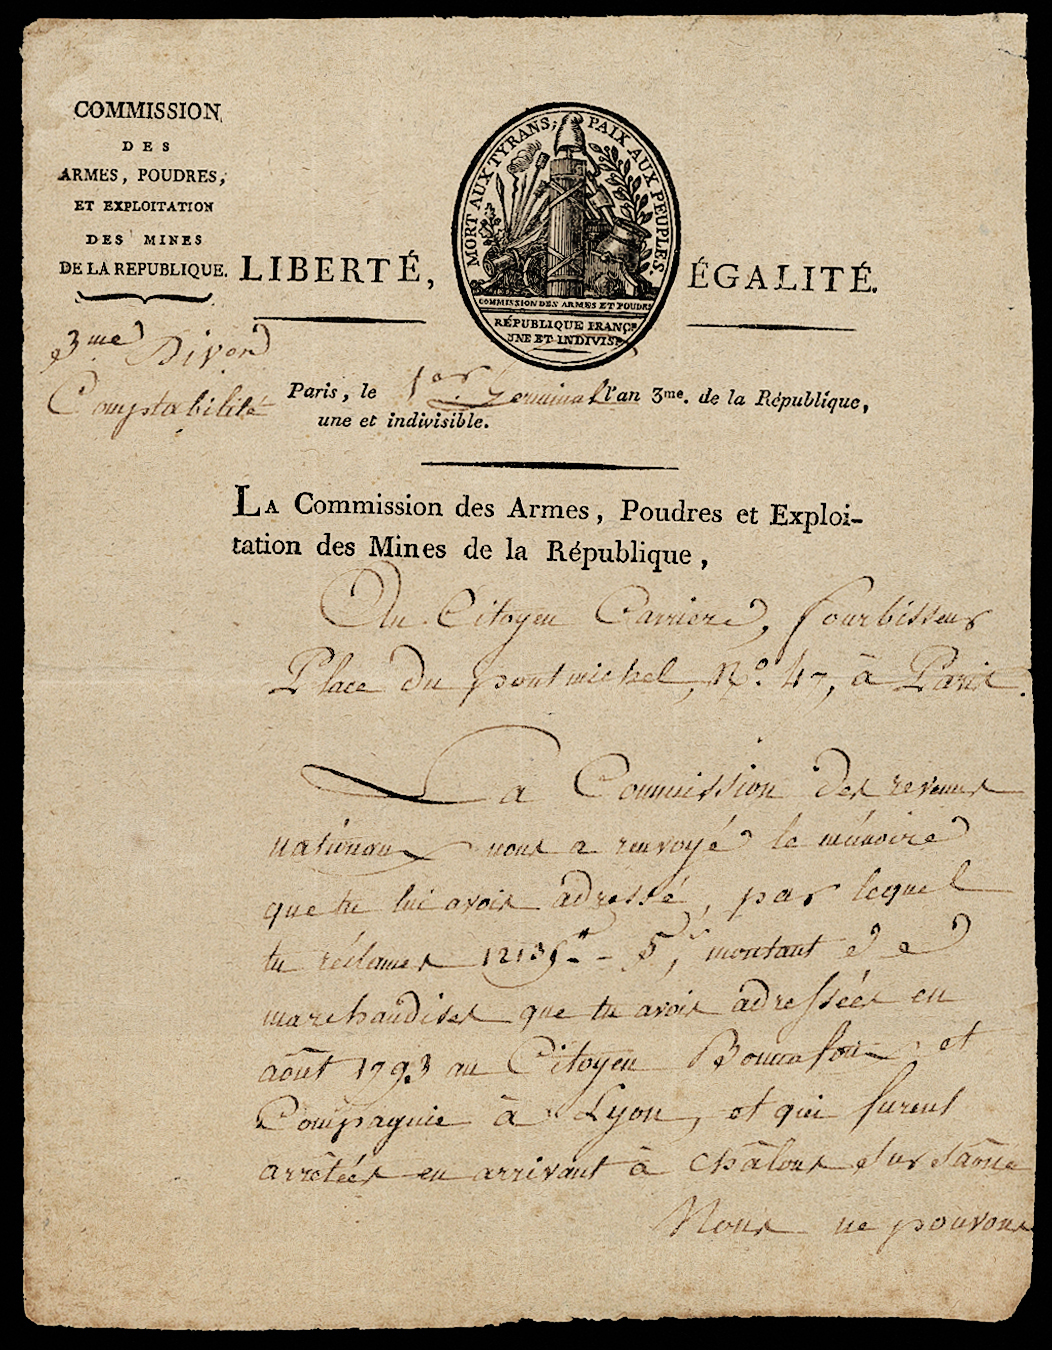 COMMISSION
DES
ARMES, POUDRES,
ET EXPLOITATION
DES MINES
DE LA REPUBLIQUE.
MORT AUX TYRANS; PAIX AUX PEUPLES.
COMMISSION DES ARMES ET POUDRE
RÉPUBLIQUE FRANÇ.
UNE ET INDIVIS.
LIBERTÉ, ÉGALITÉ.
3me Divon
Comptabilité
Paris, le 1er Germinal l'an 3me. de la République,
une et indivisible.
LA Commission des Armes, Poudres et Exploi-
tation des Mines de la République,
Au Citoyen Carriere, fourbisseur
Place du pont michel, No. 47, à Paris.
La Commission des revenus
nationaux nous a renvoyé le mémoire
que tu lui avois adressé, par lequel
tu réclames 12135ᵗᵗ - 5ˢ, montant de
marchandises que tu avois adressées en
août 1793 au Citoyen Bonnafoux et
Compagnie à Lyon, et qui furent
arrêtées en arrivant à Châlons sur Saône
Nous ne pouvons